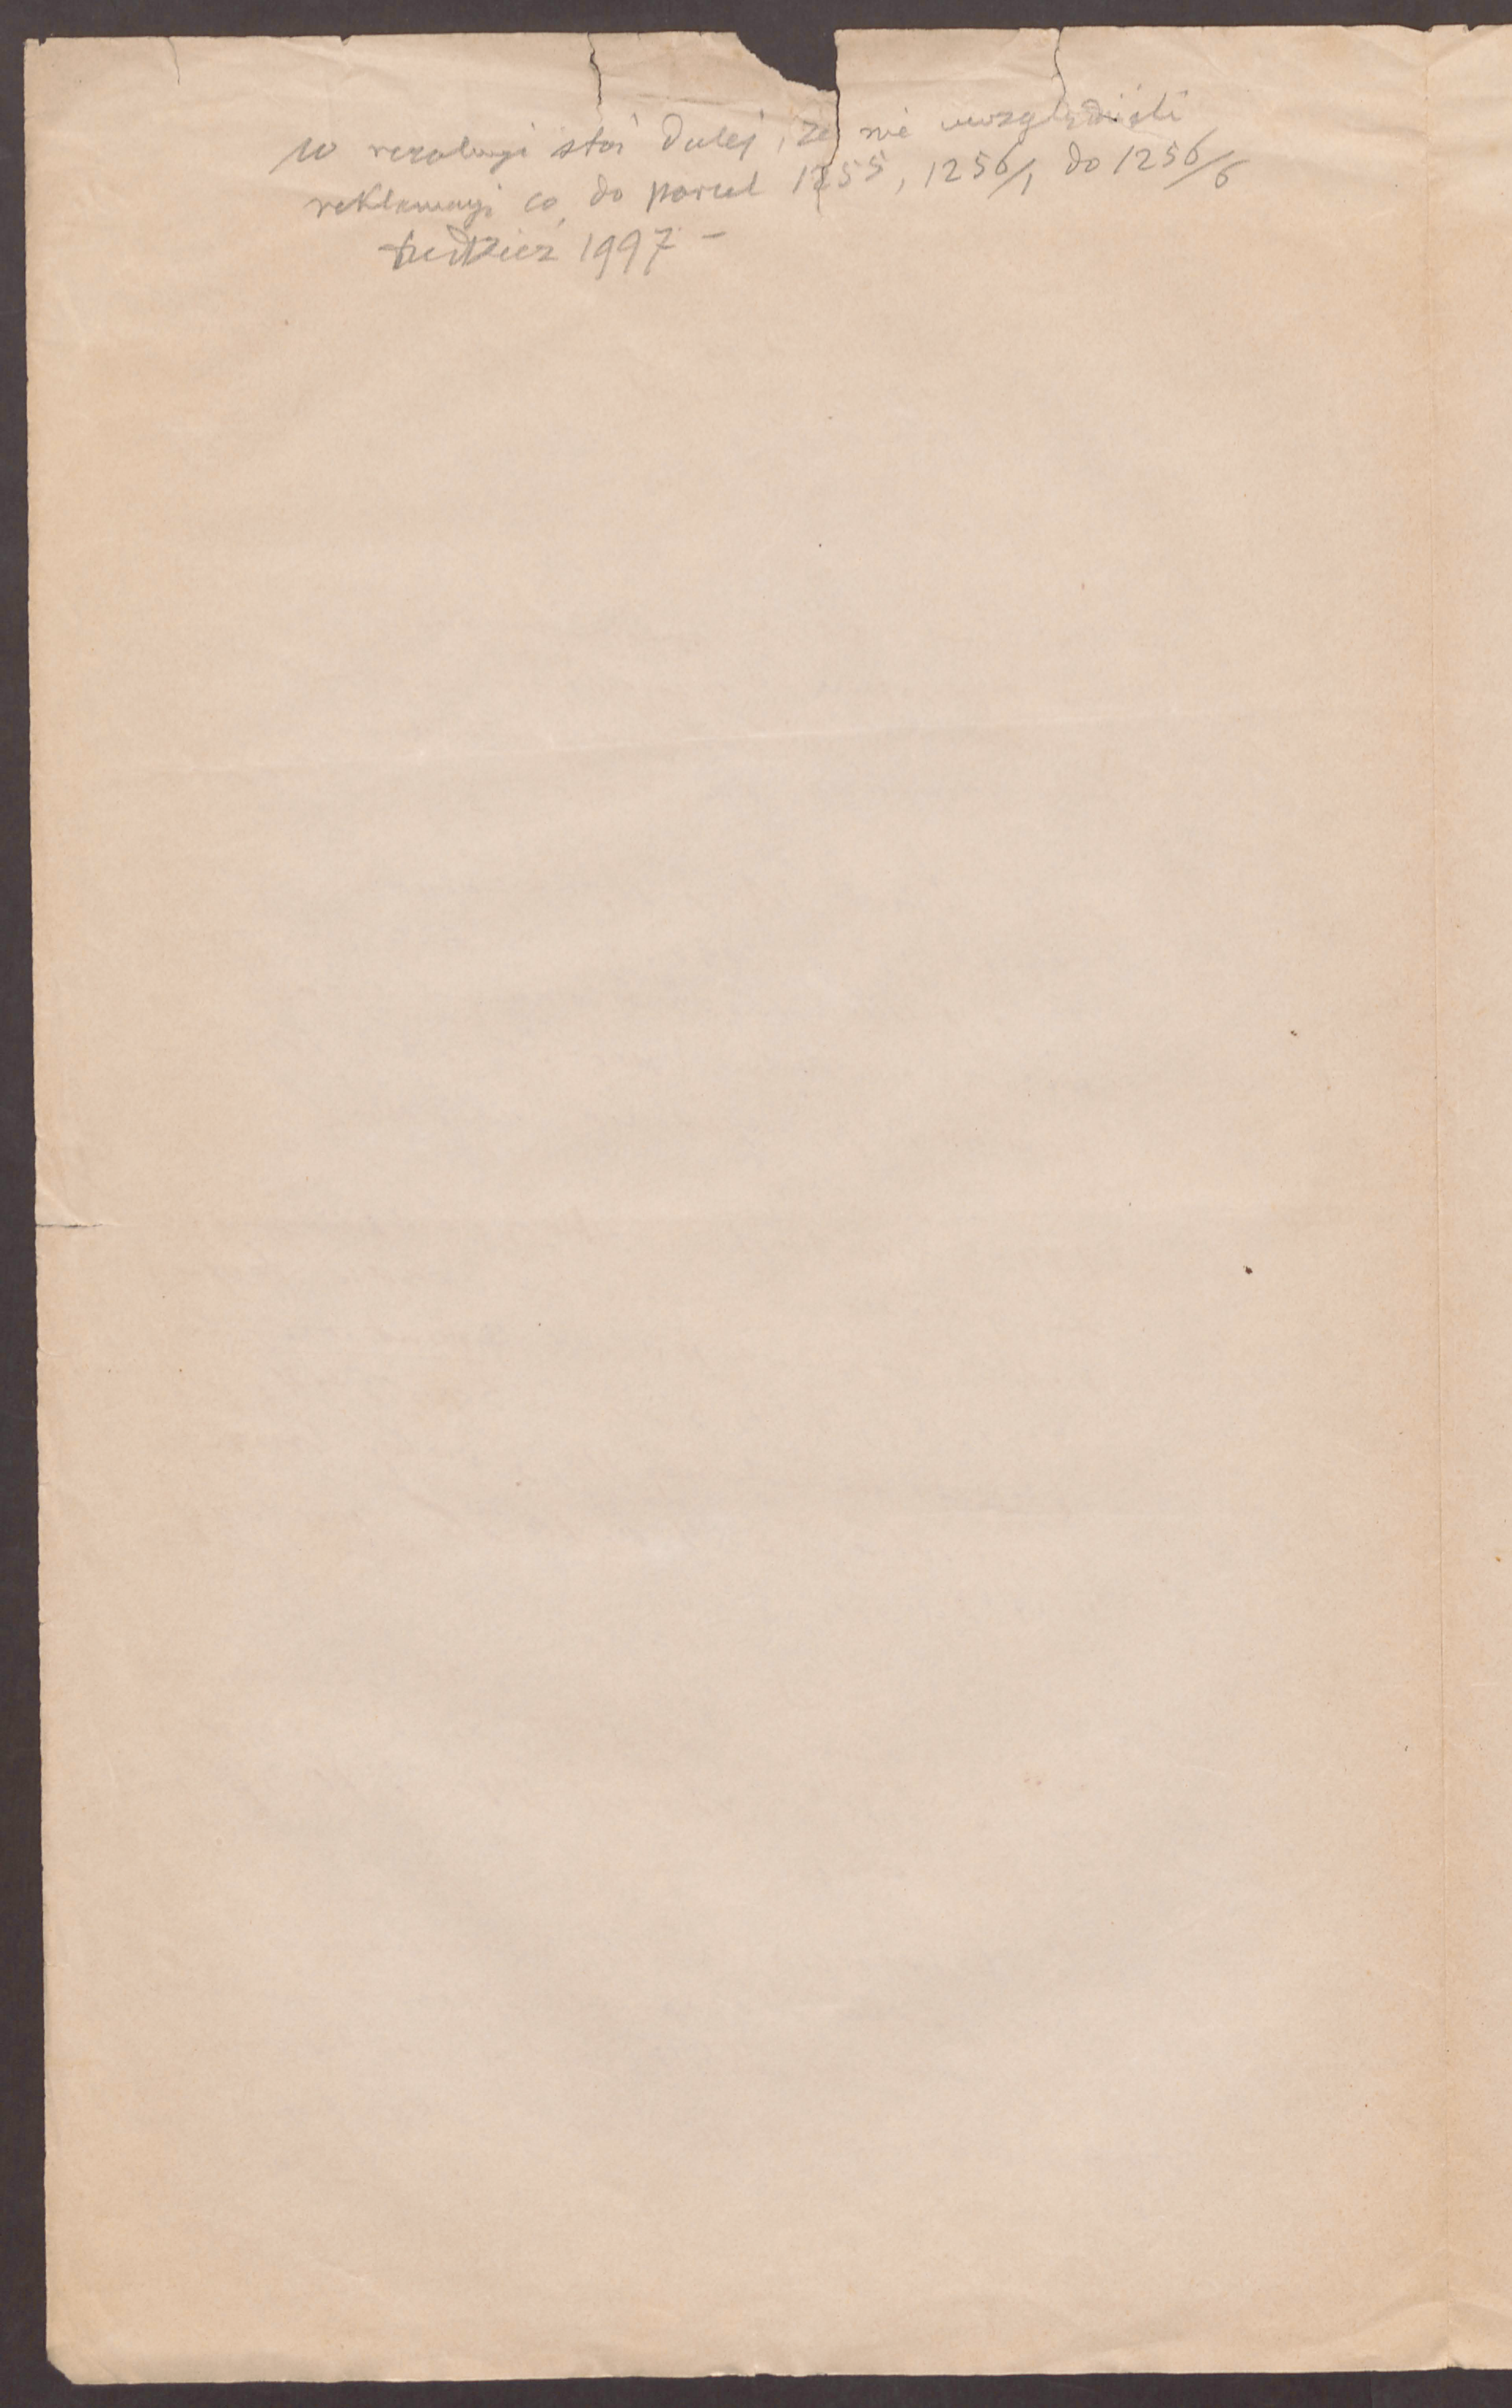 W rezolucyi stoi dalej, że nie uwzględnili
reklamacyi co do parcel 1255, 1256/1 do 1256/6
tudzież 1997 –